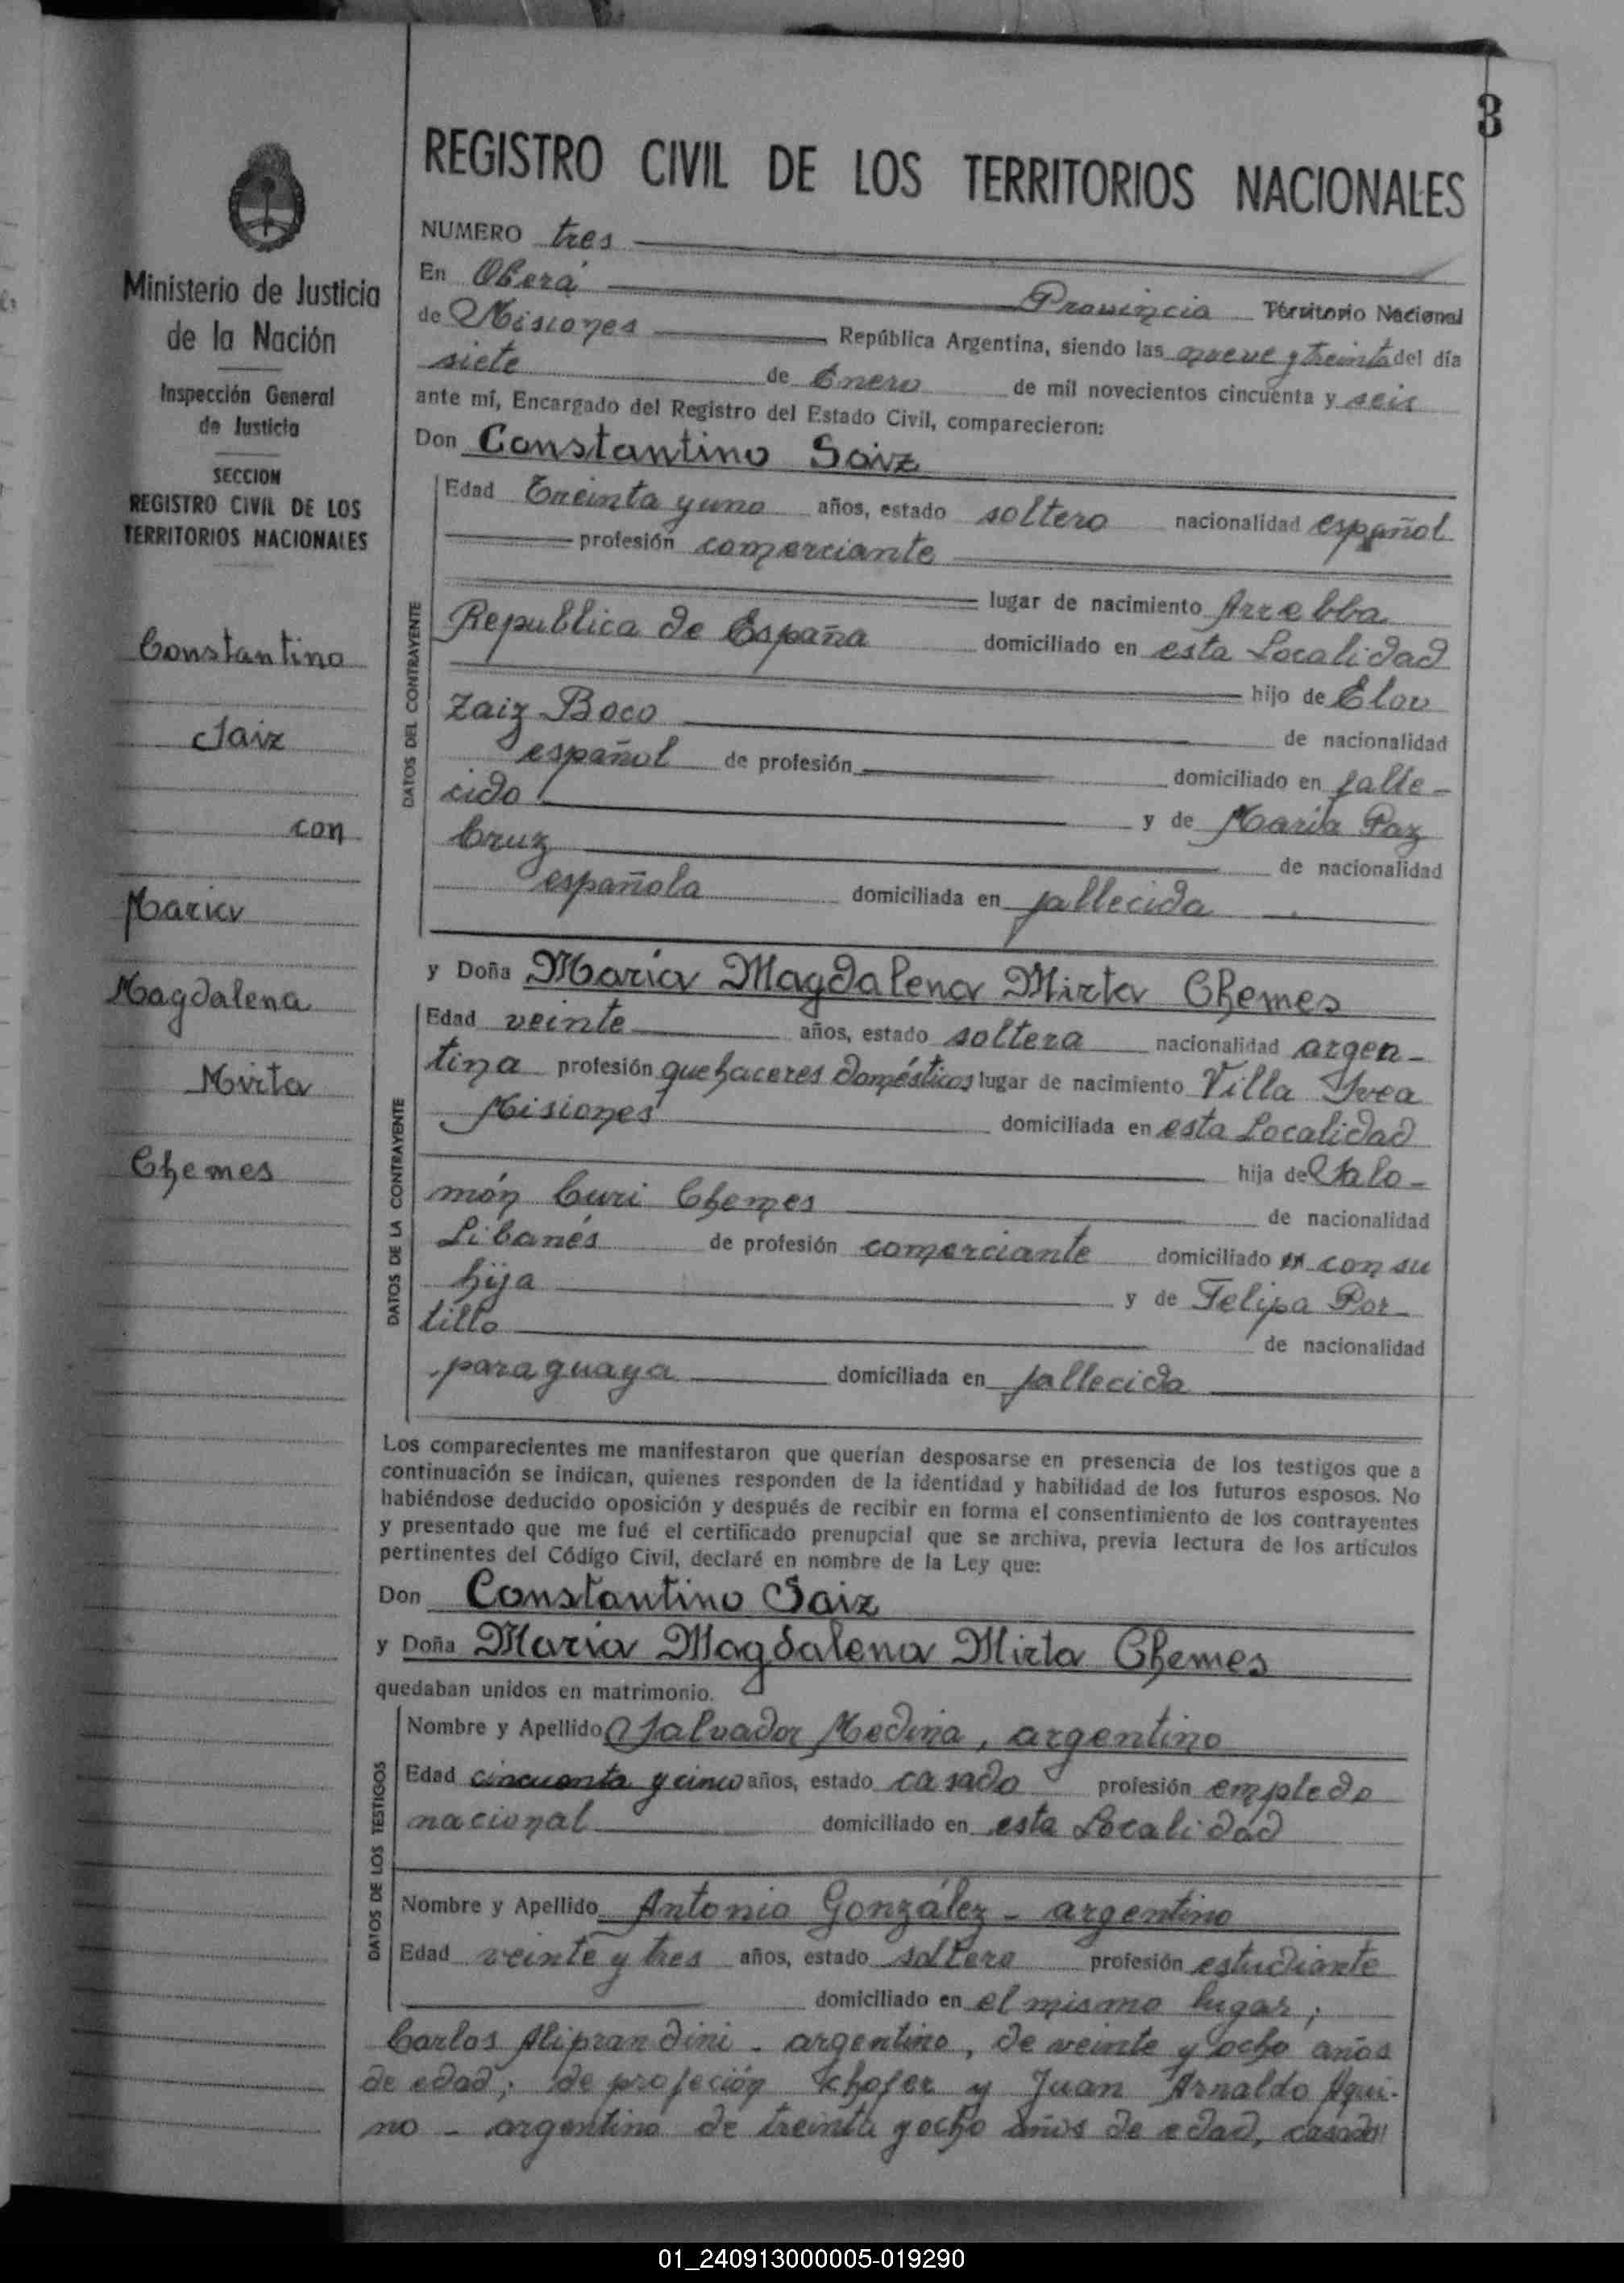 3
REGISTRO CIVIL DE LOS TERRITORIOS NACIONALES
NUMERO tres
En Oberá Provincia Territorio Nacional
de Misiones República Argentina, siendo las nueve y treinta del día
siete de Enero de mil novecientos cincuenta y seis
ante mí, Encargado del Registro del Estado Civil, comparecieron:
Don Constantino Saiz
Edad Treinta y uno años, estado soltero nacionalidad español
profesión comerciante
lugar de nacimiento Arrebba
Republica de España domiciliado en esta Localidad
hijo de Eloy
Zaiz Boco de nacionalidad
español de profesión domiciliado en falle-
cido y de Maria Paz
Cruz de nacionalidad
española domiciliada en fallecida
y Doña Maria Magdalena Mirta Chemes
Edad veinte años, estado soltera nacionalidad argen-
tina profesión quehaceres domésticos lugar de nacimiento Villa Svea
Misiones domiciliada en esta Localidad
hija de Salo-
món Curi Chemes de nacionalidad
Libanés de profesión comerciante domiciliado en con su
hija y de Felipa Por-
tillo de nacionalidad
paraguaya domiciliada en fallecida
Los comparecientes me manifestaron que querían desposarse en presencia de los testigos que a
continuación se indican, quienes responden de la identidad y habilidad de los futuros esposos. No
habiéndose deducido oposición y después de recibir en forma el consentimiento de los contrayentes
y presentado que me fué el certificado prenupcial que se archiva, previa lectura de los artículos
pertinentes del Código Civil, declaré en nombre de la Ley que:
Don Constantino Saiz
y Doña Maria Magdalena Mirta Chemes
quedaban unidos en matrimonio.
Nombre y Apellido Salvador Medina, argentino
Edad cincuenta y cinco años, estado casado profesión empledo
nacional domiciliado en esta Localidad
Nombre y Apellido Antonio González - argentino
Edad veinte y tres años, estado soltero profesión estudiante
domiciliado en el mismo lugar;
Carlos Aliprandini - argentino, de veinte y ocho años
de edad; de profeción Schofer y Juan Arnaldo Aqui-
no - argentino de treinta y ocho años de edad, casado
DATOS DEL CONTRAYENTE
DATOS DE LA CONTRAYENTE
DATOS DE LOS TESTIGOS
Ministerio de Justicia
de la Nación
Inspección General
de Justicia
SECCION
REGISTRO CIVIL DE LOS
TERRITORIOS NACIONALES
Constantino
Saiz
con
Maria
Magdalena
Mirta
Chemes
01_240913000005-019290